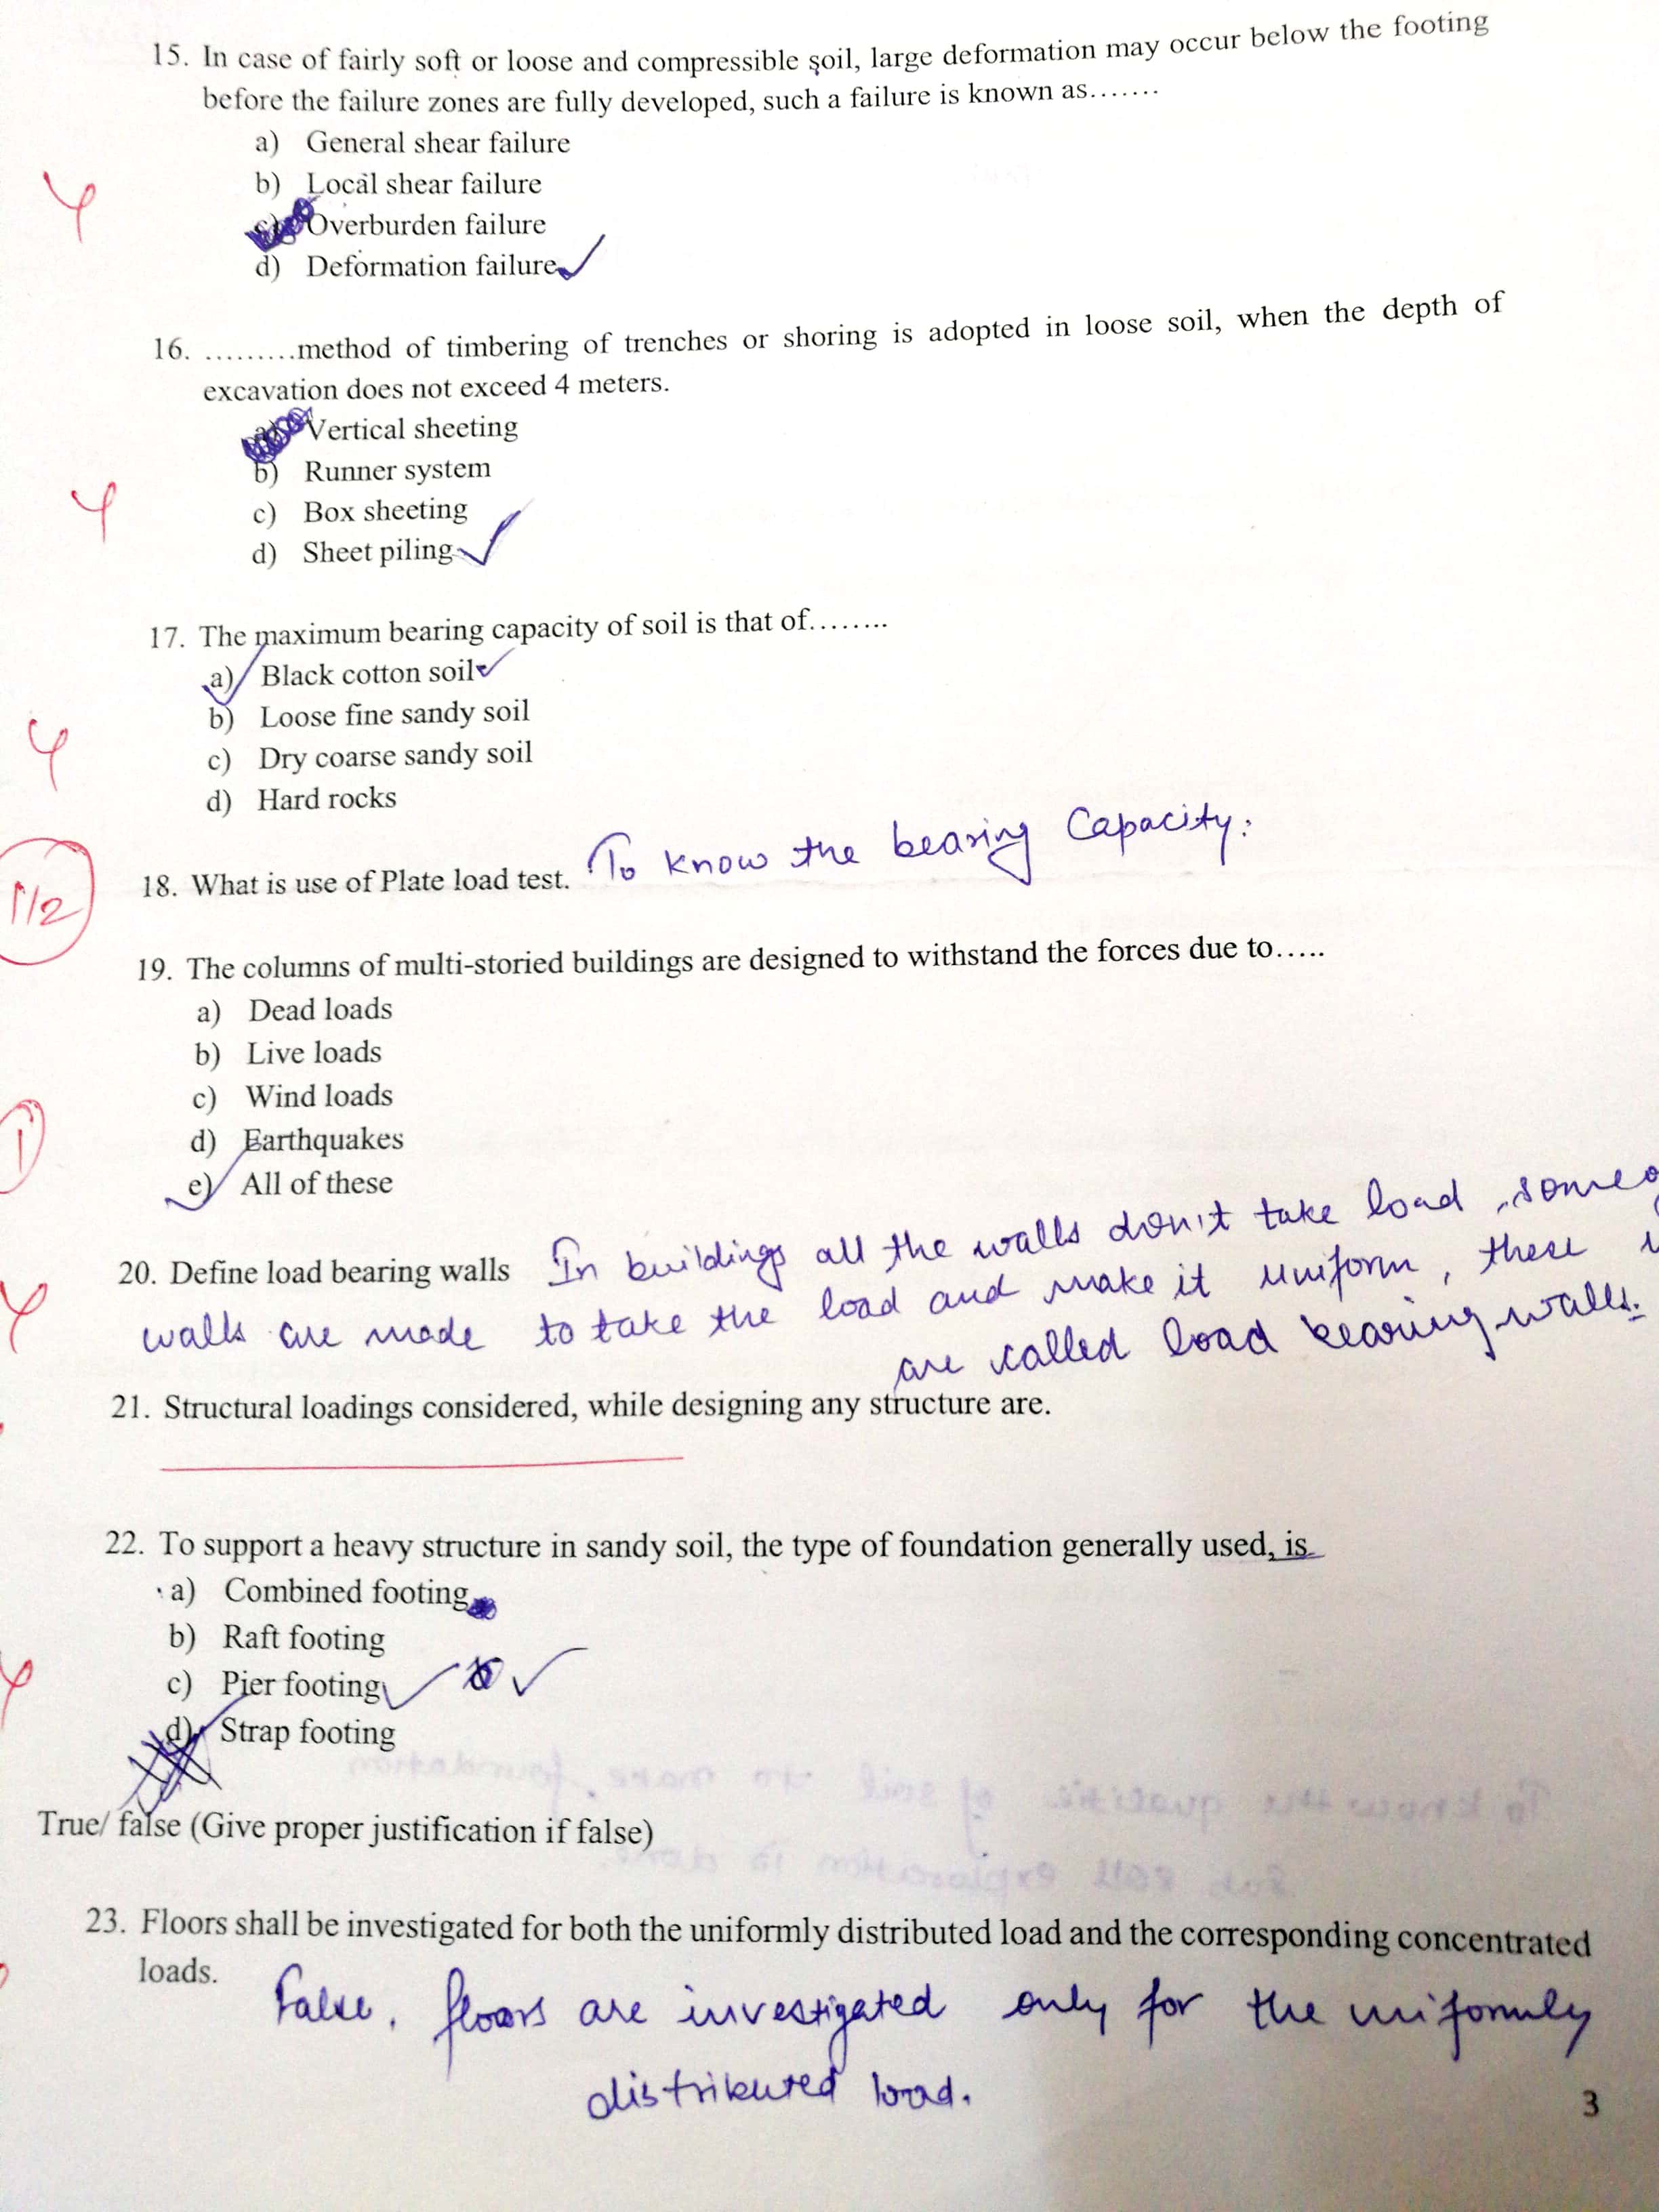 15. In case of fairly soft or loose and compressible soil, large deformation may occur below the footing
before the failure zones are fully developed, such a failure is known as.......
a) General shear failure
b) Local shear failure
c) Overburden failure
d) Deformation failure
16. .........method of timbering of trenches or shoring is adopted in loose soil, when the depth of
excavation does not exceed 4 meters.
a) Vertical sheeting
b) Runner system
c) Box sheeting
d) Sheet piling
17. The maximum bearing capacity of soil is that of........
a) Black cotton soil
b) Loose fine sandy soil
c) Dry coarse sandy soil
d) Hard rocks
18. What is use of Plate load test. To know the bearing Capacity.
1/2
19. The columns of multi-storied buildings are designed to withstand the forces due to.....
a) Dead loads
b) Live loads
c) Wind loads
d) Earthquakes
1
e) All of these
20. Define load bearing walls In buildings all the walls don't take load, some
walls are made to take the load and make it uniform, these
are called load bearing walls.
21. Structural loadings considered, while designing any structure are.
22. To support a heavy structure in sandy soil, the type of foundation generally used, is
a) Combined footing
b) Raft footing
c) Pier footing
d) Strap footing
True/ false (Give proper justification if false)
23. Floors shall be investigated for both the uniformly distributed load and the corresponding concentrated
loads.
False, floors are investigated only for the uniformly
distributed load.
3